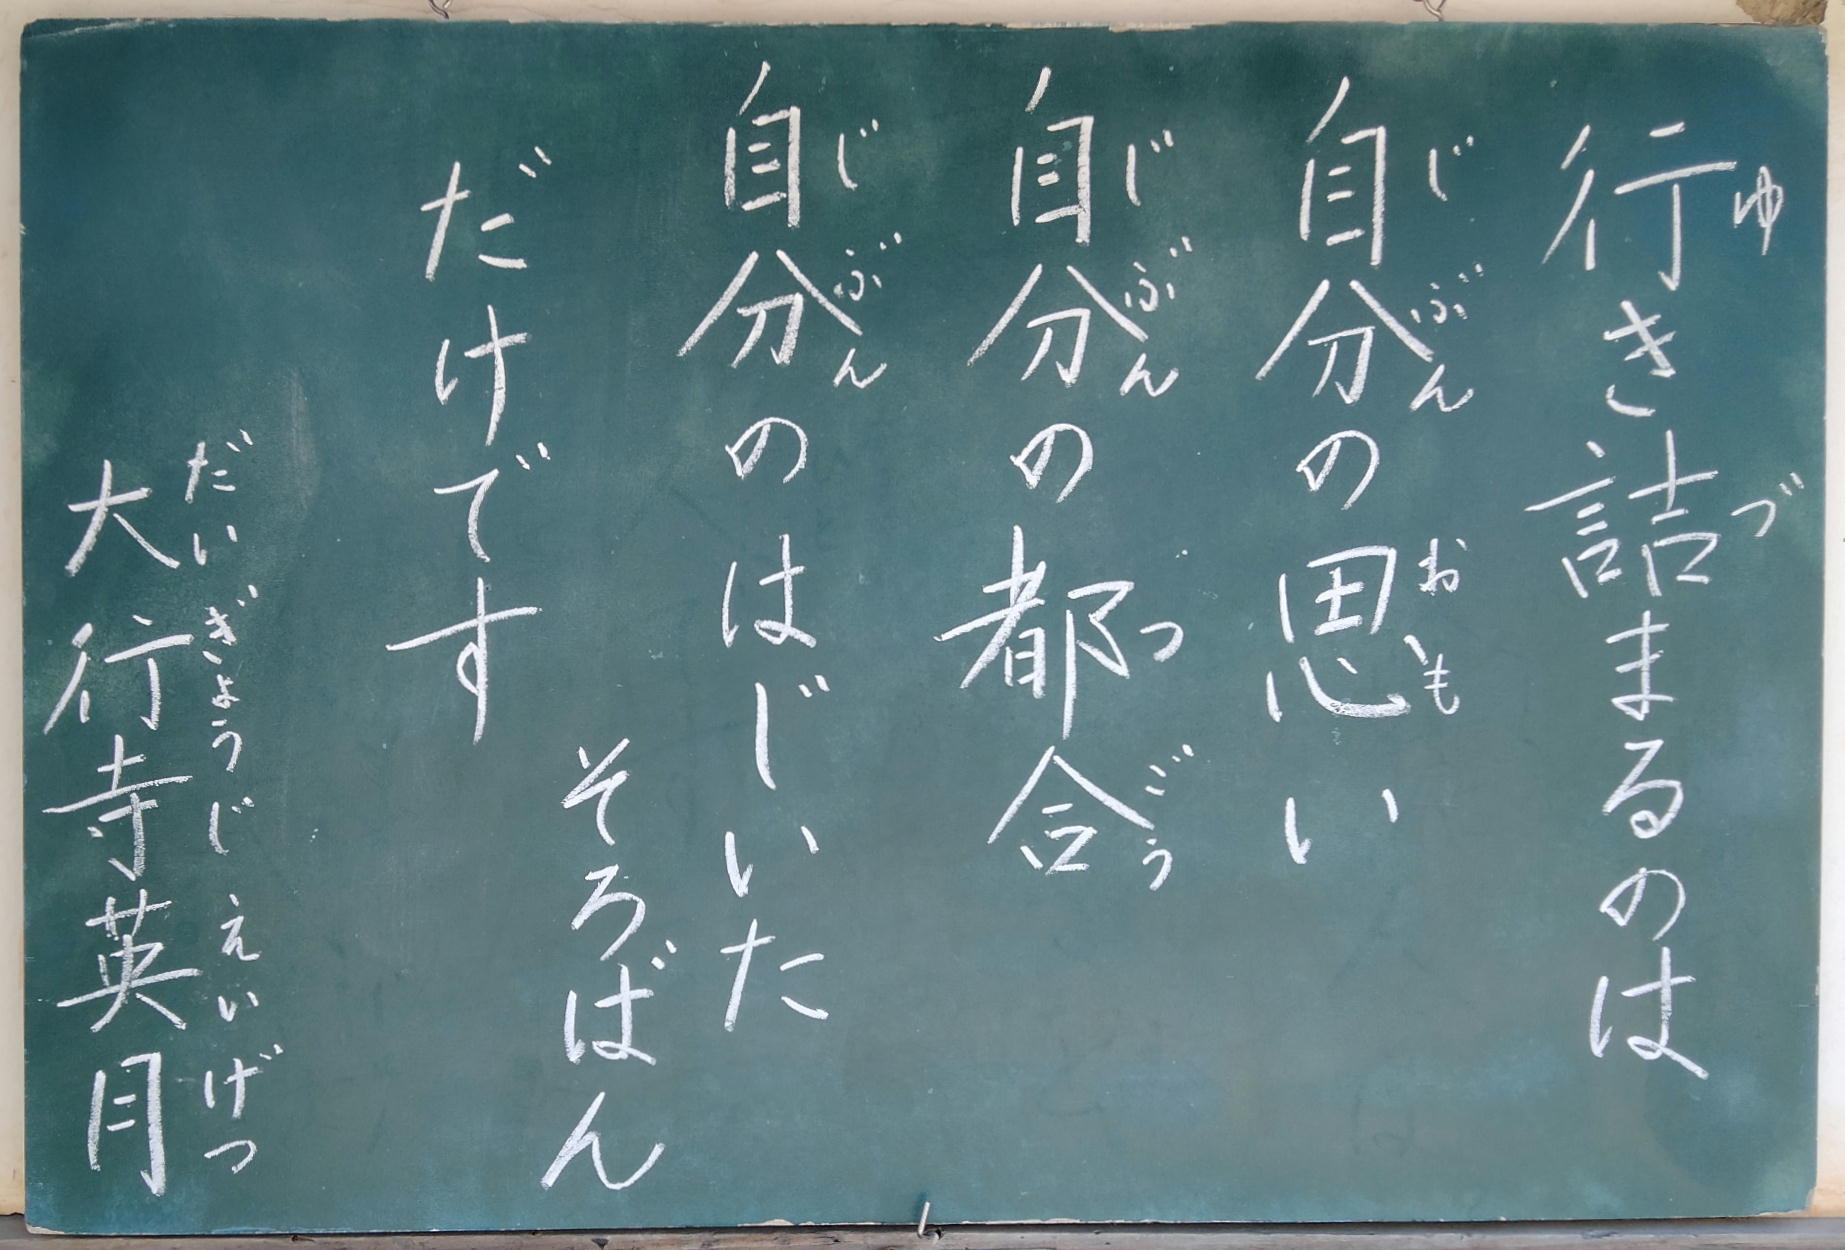 行き詰まるのは
ゆ づ
自分の思い
じぶん おも
自分の都合
じぶん つごう
自分のはじいた
じぶん
そろばん
だけです
大行寺英月
だいぎょうじえいげつ